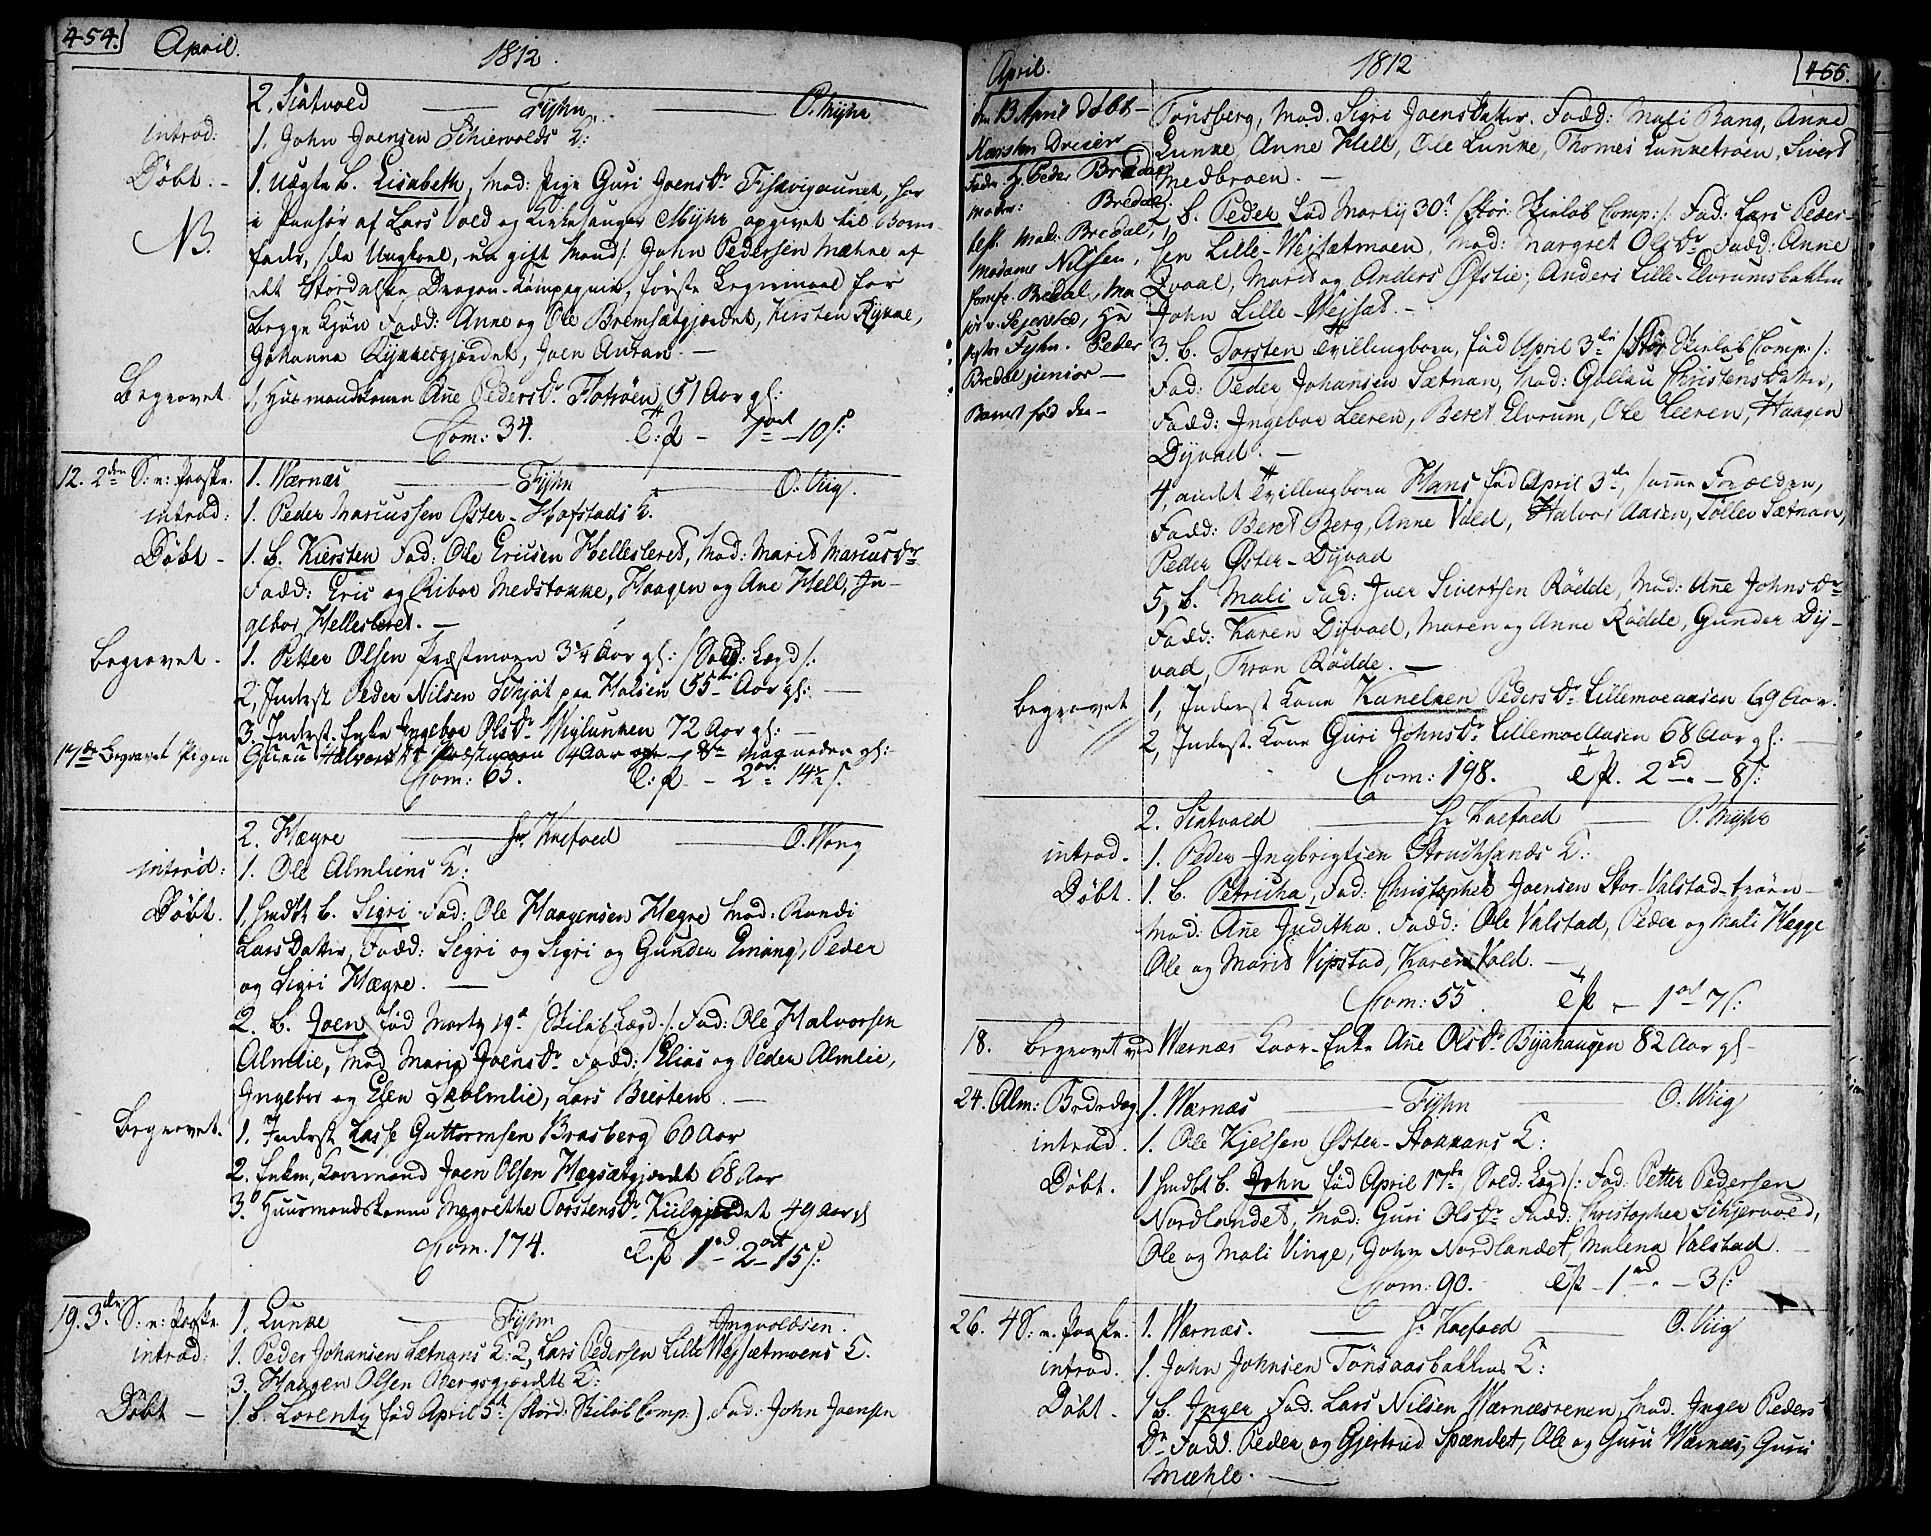 454. April. 1812.
2. Skatvold — Fyhn — O. Myhr
introd: 1. John Joensen Schiervolds K:
Døbt. – 1. Uægte b. Lisabeth, Mod: Pige Guri Joensdr Fiskvigaunet, har
NB. i Paahør af Lars Vold og Kirkesanger Myhr opgivet til Barne-
fader, /da Ungkarl, nu gift Mand/. John Pedersen Mæhre af
det Stordalske Dragon-Compagnie, første Leiermaal for
begge Kjøn Fadd: Anne og Ole Bremsætgjerdet, Kirsten Rykke,
Johanna Rykkesgjerdet, Joen Auran. —
Begravet. 1, Huusmandskonen Ane Pedersdr Flotrøen, 51 Aar gl:
Com: 34. T: p – 1 ort – 10 s:
12. 2den S: e: Paaske. 1. Wærnæs — Fyhn — O. Wiig.
introd: 1. Peder Marcussen Øster-Hofstads K.
Døbt – 1. b. Kiersten Fad: Ole Ericsen Hellesteret, Mod: Marit Marcusdr
Fadd: Eric og Ribor Medstokke, Haagen og Ane Hell, In-
gebor Hellesteret. —
Begravet. 1. Petter Olsen Præstmoen 3 1/4 Aar gl: /Sold: Lægd/:
2, Inderst Peder Nilsen Schjøt paa Halsen 55 Aar gl: —
3. Inderst. Enke Ingebor Olsdr Wiglunken 72 Aar gl: —
17de Begravet Pigen Guru Halvorsdr 4 Aar 8te Maaneder gl:
Com: 65. T: p – 2 ort 14 1/2 s.
2. Hægre — Hr Koefoed — O. Wong
introd: 1. Ole Almliens K:
Døbt. 1, hmdbt b. Sigri Fad: Ole Haagensen Hægre Mod: Randi
Larsdatter, Fadd: Sigri og Sigri og Gunder Eming, Peder
og Sigri Hægre. —
2. b. Joen fød Martz 19d /Skiløb Lægd./. Fad: Ole Halvorsen
Almlie, Mod Maria Joensdr Fadd: Elias og Peder Almlie,
Ingebor og Elen Almlie, Lars Biertem. —
Begravet. 1. Inderst Lasse Guttormsen Brasberg 60 Aar
2. Enkem, Kaarmand Joen Olsen Hægsætgjerdet 68 Aar
3. Huusmandskonne Megrethe Torstensdr Kiilgjerdet 49 Aar gl
Com. 174. T. p 1 rd 2 ort 15 s:
19. 3die S: e: Paaske. 1. Lunke — Fyhn — Ingvoldsen.
introd: 1. Peder Johansen Sætnans K: 2, Lars Pedersen Lille Wejsætmoens K.
3. Haagen Olsen Bergsgjerdets K:
Døbt — 1. b. Lorentz fød April 5t (Stord: Skiløb Comp:) Fad: John Joensen
April. 1812 455.
den 13 April døbt –
Karsten Dreier
Fader. H. Peder Bredal
Moder: Bredal.
test. Mad: Bredal,
Madame Nilssen,
Jomfr. Bredal, Ma
jor v. Sejersted, Hr
pastor Fyhn. Peder
Bredal junior —
Barnet fød den –
Tønsberg, Mod. Sigri Joensdatter. Fadd: Mali Bang, Anne
Lunke, Anne Hell, Ole Lunke, Thomes Lunketrøen, Sivert
Medbroen. —
2, b. Peder fød Martz 30t /Stør: Skieløb Comp:/. Fad: Lars Peder-
sen Lille-Wejsætmoen, Mod: Margret Olsdr Fadd: Anne
Qvaal, Marit og Anders Øfstie; Anders Lille-Elvrumsbakken
John Lille-Wejsæt. —
3. b. Torsten Tvillingborn, fød April 3die /Stør Skieløb Comp:/:
Fad: Peder Johansen Sætnan, Mod: Gollau Christensdatter,
Fadd: Ingebor Leeren, Beret Elvrum, Ole Leeren, Haagen
Dyvad. —
4, andet Tvillingborn Hans fød April 3de, samme Forældre,
Fadd: Beret Berg, Anne Vold, Halvor Aasen, Tøllev Sætnan,
Peder Øster-Dyvad
5, b. Mali Fad: Iver Sivertsen Rødde, Mod: Ane Johnsdr
Fadd: Karen Dyvad, Maren og Anne Rødde, Gunder Dy-
vad, Tron Rødde. —
begravet 1, Inderst Kone Kanelken Pedersdr Lillemoeaasen 69 Aar.
2, Inderst. Kone Guri Johnsdr Lillemoe Aasen 68 Aar gl: —
Com: 198. T p. 2 rd – 8 s:
2. Skatvold — Hr Koefoed — O. Myhr
introd. 1. Peder Ingbrigtsen Strucksnæs K:
Døbt. 1. b. Petricha, Fad: Christopher Joensen Stor-Valstad-trøen –
Mod: Ane Juditha. Fadd: Ole Valstad, Peder og Mali Hegge
Ole og Marit Vipstad, Karen Vold. —
Com: 55 T p – 1 ort 7 s:
18. begravet ved Wærnæs Kaar-Enke Ane Olsdr Byahaugen 82 Aar gl –
24. Alm: Bededag 1. Wærnæs — Fyhn — O. Wiig
introd. 1. Ole Kjelsen Øster-Stokkans K:
Døbt. 1 hmdbt b. John fød April 17de /Sold: Lægd/: Fad: Petter Pedersen
Nordlandet, Mod: Guri Olsdr Fadd: Christopher Schjervold,
Ole og Mali Vinge, John Nordlandet, Malena Valstad. —
Com: 90. T p – 1 rd – 3 s:
26. 4 S: e. Paaske. 1. Wærnæs. — Hr Koefoed — O. Wiig
introd. 1. John Johnsen Tønsaasbakkens K:
Døbt. 1 b. Inger Fad. Lars Nilsen Wærnæsrenen, Mod. Inger Peders
Dr Fadd. Peder og Gjertrud Spændet, Ole og Guru Wærnæs, Guru
Mæhle. —